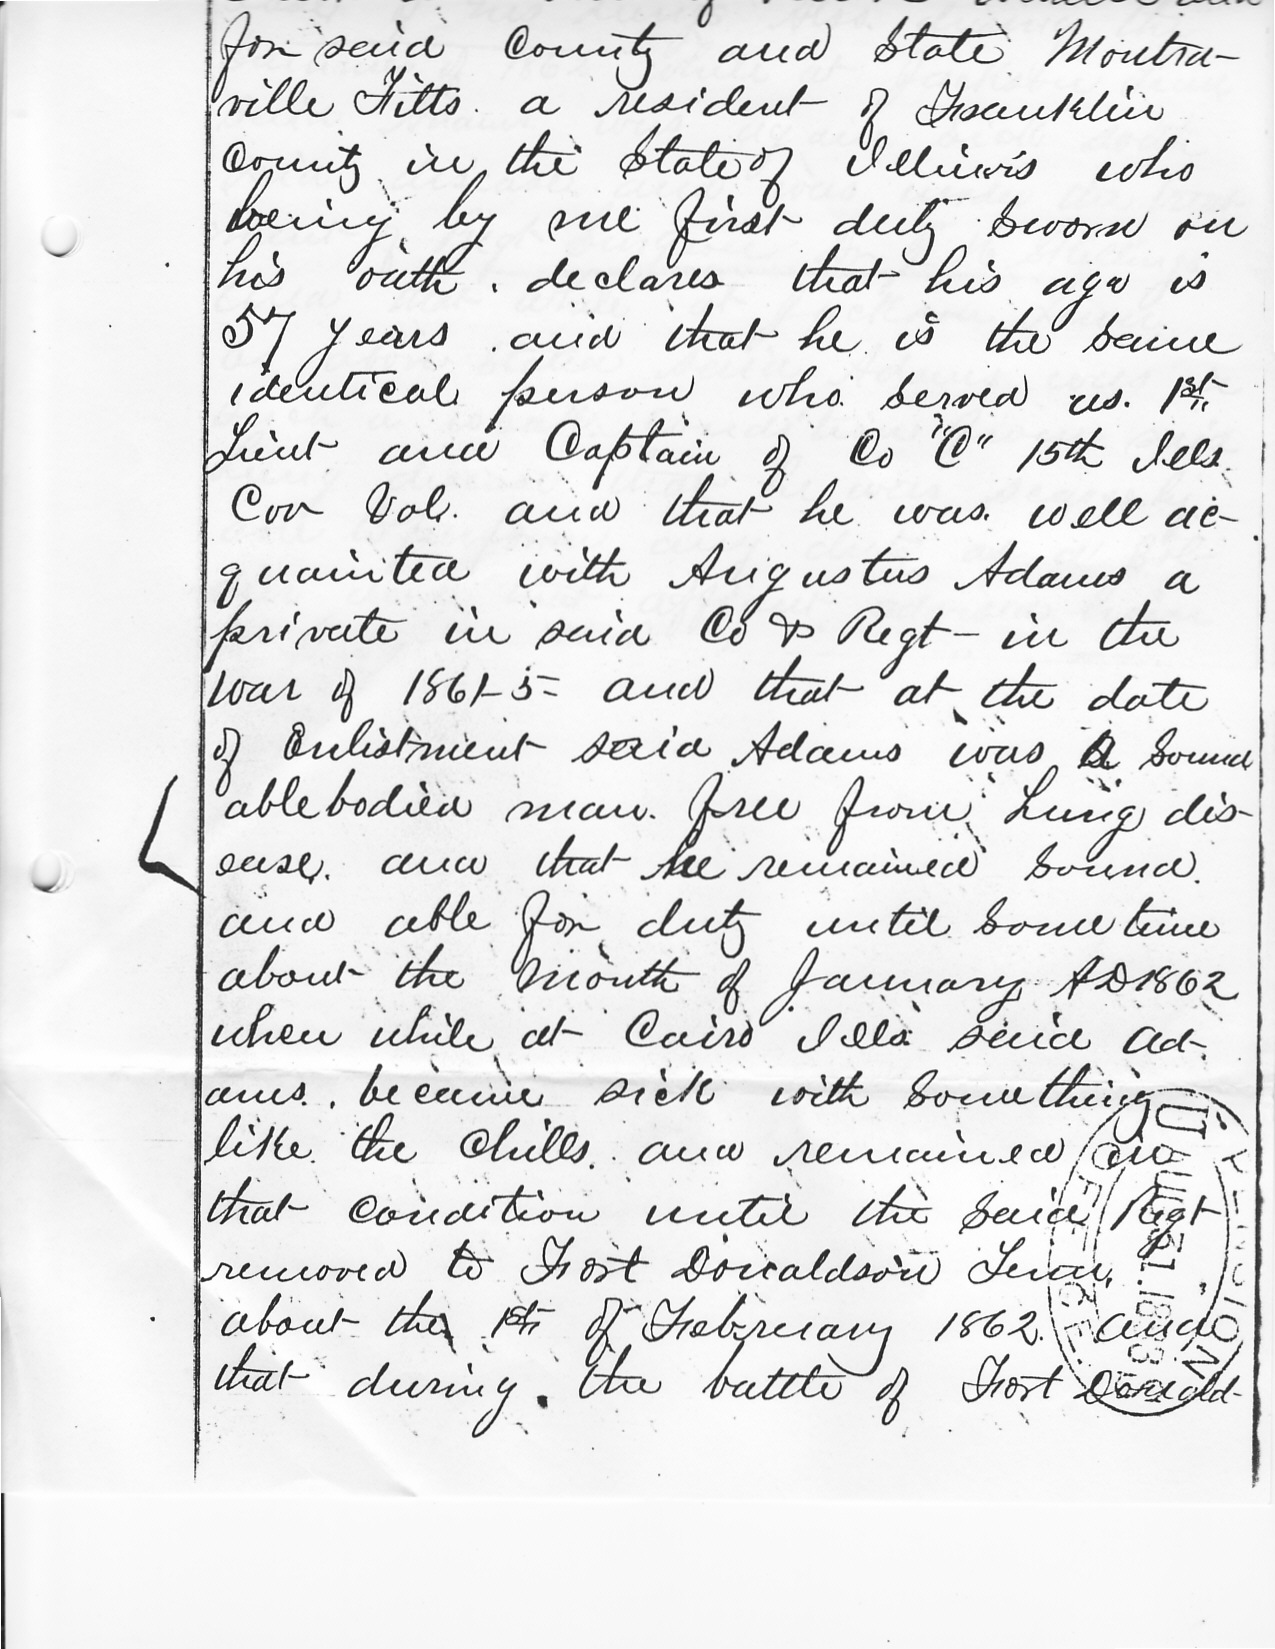 for said County and State Montra-
ville Fitts. a resident of Franklin
County in the State of Illinois who
being by me first duty Sworn on
his oath. declares that his age is
57 years. and that he is the Same
identical person who served as. 1st
Lieut and Captain of Co "C" 15th Ills
Cav Vol. and that he was well ac-
quainted with Augustus Adams a
private in said Co & Regt - in the
war of 1861-5- and that at the date
of Enlistment said Adams was a Sound
ablebodied man. free from Lung dis-
ease. and that he remained Sound.
and able for duty until Sometime
about the Month of January AD 1862
when while at Cairo Ills said Ad-
ams. became sick with Something
like the Chills. and remained in
that Condition until the Said Regt
removed to Fort Donaldson Tenn.
about the 1st of February 1862 and
that during. the battle of Fort Donald-
PENSION OFFICE